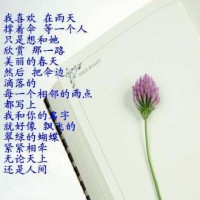 我喜欢 在雨天
撑着伞 等一个人
只是想和她
欣赏 那一路
美丽的春天
然后 把伞边
滴落的
每一个相邻的雨点
都写上
我和你的名字
就好像 飘飞的
翠绿的蝴蝶
紧紧相牵
无论天上
还是人间